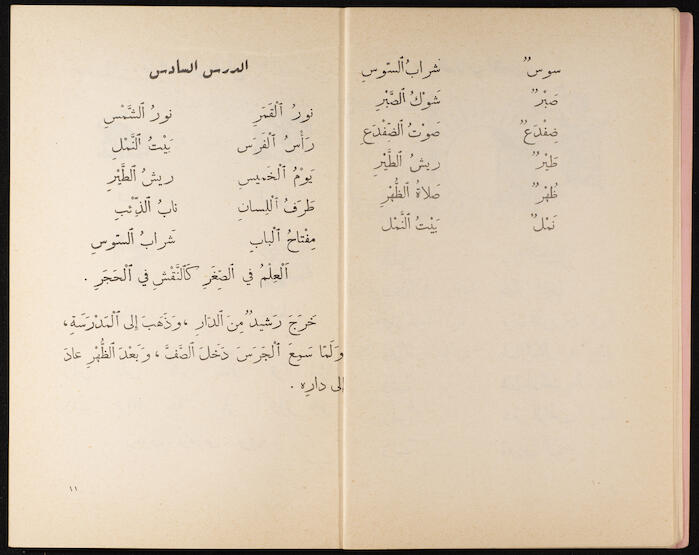 سوسٌ شرابُ ٱلسّوسِ
صَبْرٌ شَوْكُ ٱلصَّبْرِ
ضِفْدَعٌ صَوْتُ ٱلضِّفْدَعِ
طَيْرٌ ريشُ ٱلطَّيْرِ
ظُهْرٌ صَلاةُ ٱلظُّهْرِ
نَمْلٌ بَيْتُ ٱلنَّمْلِ
الدرس السادس
نورُ ٱلْقَمَرِ نورُ ٱلشَّمْسِ
رَأْسُ ٱلْفَرَسِ بَيْتُ ٱلنَّمْلِ
يَوْمُ ٱلْخَميسِ ريشُ ٱلطَّيْرِ
طَرَفُ ٱللِّسانِ نابُ ٱلذِّئْبِ
مِفْتاحُ ٱلْبابِ شَرابُ ٱلسّوسِ
ٱلْعِلْمُ في ٱلصِّغَرِ كَٱلنَّقْشِ في ٱلْحَجَرِ .
خَرَجَ رَشيدٌ مِنَ ٱلدّارِ ، وَذَهَبَ إلى ٱلْمَدْرَسَةِ ،
وَلَمّا سَمِعَ ٱلْجَرَسَ دَخَلَ ٱلصَّفَّ ، وَبَعْدَ ٱلظُّهْرِ عادَ
إلى دارِهِ .
١١